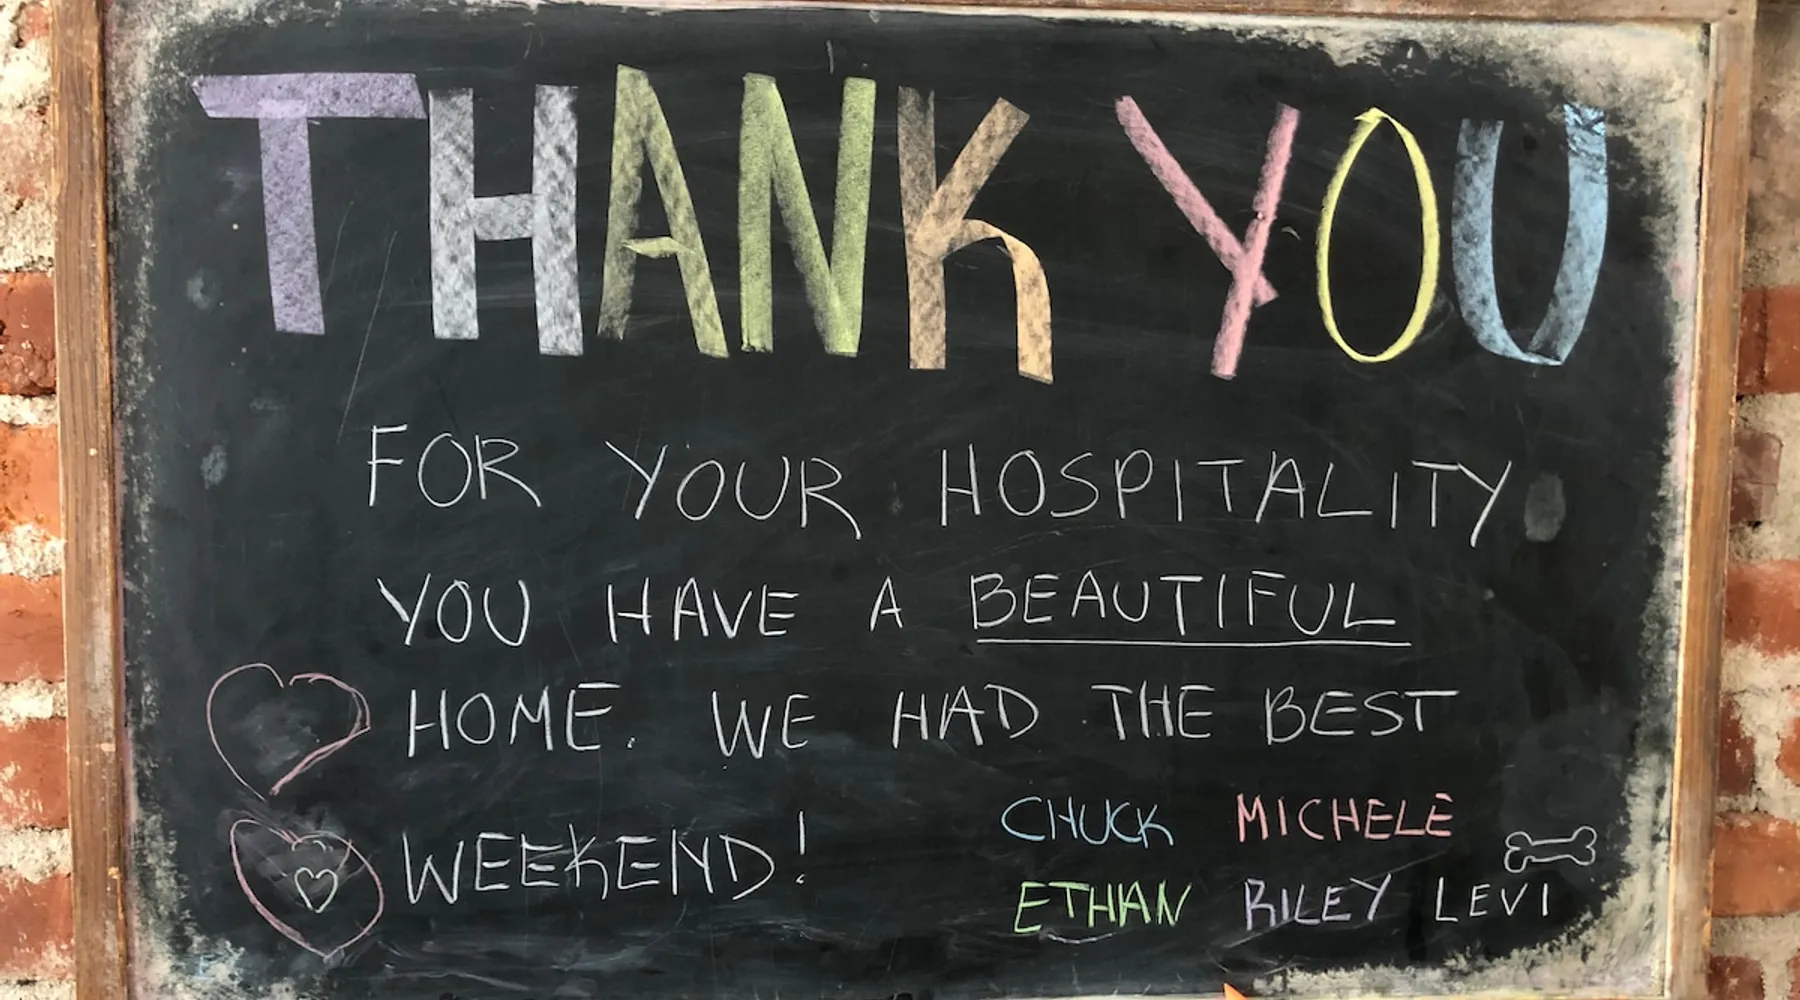 THANK YOU
FOR YOUR HOSPITALITY
YOU HAVE A BEAUTIFUL
HOME. WE HAD THE BEST
WEEKEND!
CHUCK MICHELE
ETHAN RILEY LEVI